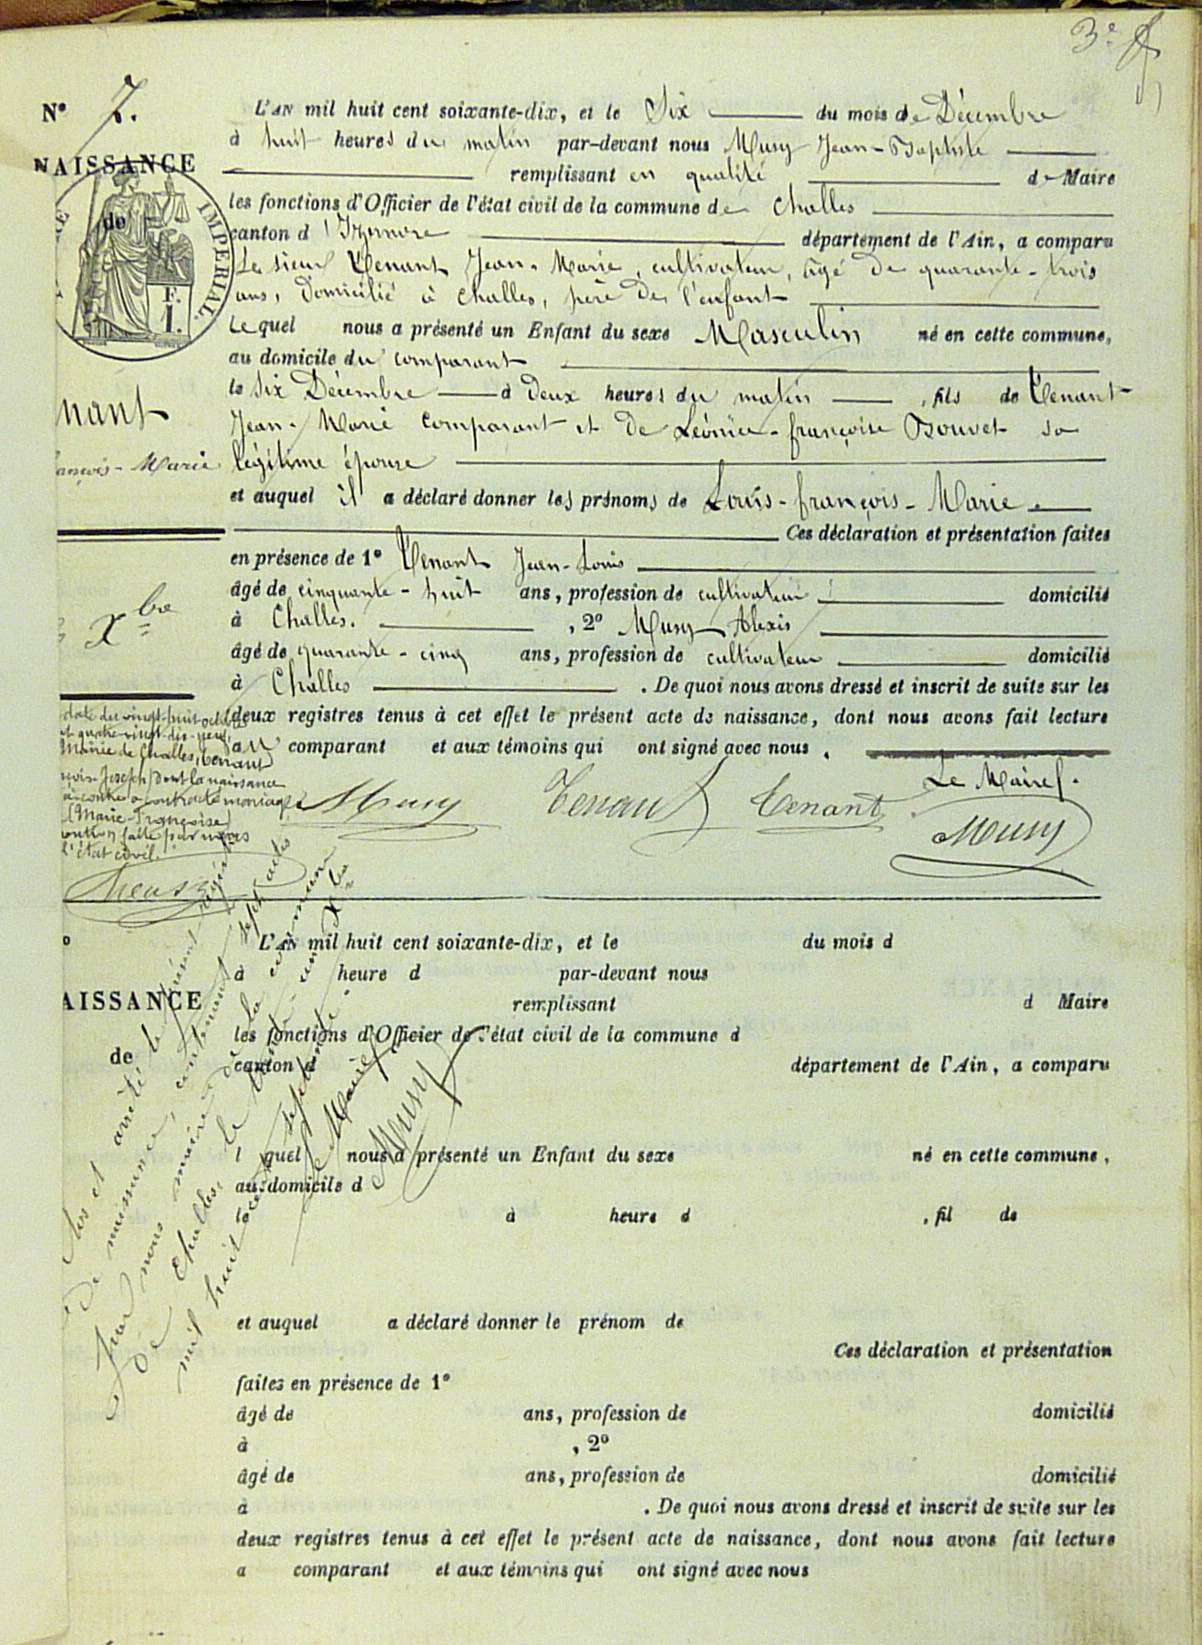 3e f.
N° 7.
NAISSANCE
de
IMPERIAL.
F.
1.
nant
ançois-Marie
Xbre
L'AN mil huit cent soixante-dix, et le Six du mois de Décembre
à huit heures du matin par-devant nous Musy Jean-Baptiste
remplissant en qualité de Maire
les fonctions d'Officier de l'état civil de la commune de Challes
canton d'Izernore département de l'Ain, a comparu
Le sieur Tenant Jean-Marie, cultivateur, âgé de quarante-trois
ans, domicilié à Challes, père de l'enfant
Lequel nous a présenté un Enfant du sexe Masculin né en cette commune,
au domicile du comparant
le Six Décembre à Deux heures du matin, fils de Tenant
Jean-Marie comparant et de Léonice-françoise Bouvet sa
légitime épouse
et auquel il a déclaré donner les prénoms de Louis-françois-Marie
Ces déclaration et présentation faites
en présence de 1° Tenant Jean-Louis
âgé de cinquante-huit ans, profession de cultivateur domicilié
à Challes., 2° Musy Alexis
âgé de quarante-cinq ans, profession de cultivateur domicilié
à Challes. De quoi nous avons dressé et inscrit de suite sur les
deux registres tenus à cet effet le présent acte de naissance, dont nous avons fait lecture
au comparant et aux témoins qui ont signé avec nous.
Le Maire.
Musy Tenant Tenant Musy
date du vingt-huit oct
quatre-vingt-dix-neuf,
Mairie de Challes, Tenant
Joseph dont la naissance
ci-contre a contracté mariage
Marie-Françoise
faite par nous
l'état civil.
Clos et arrêté le présent registre
de naissance, contenant sept actes
par nous maire de la commune
de Challes, le trente-un Xbre
mil huit cent septante.
Le Maire
Musy
°
AISSANCE
de
L'AN mil huit cent soixante-dix, et le du mois d
à heure d par-devant nous
remplissant d Maire
les fonctions d'Officier de l'état civil de la commune d
canton d département de l'Ain, a comparu
l quel nous a présenté un Enfant du sexe né en cette commune,
au domicile d
le à heure d, fil de
et auquel a déclaré donner le prénom de
Ces déclaration et présentation
faites en présence de 1°
âgé de ans, profession de domicilié
à, 2°
âgé de ans, profession de domicilié
à. De quoi nous avons dressé et inscrit de suite sur les
deux registres tenus à cet effet le présent acte de naissance, dont nous avons fait lecture
a comparant et aux témoins qui ont signé avec nous